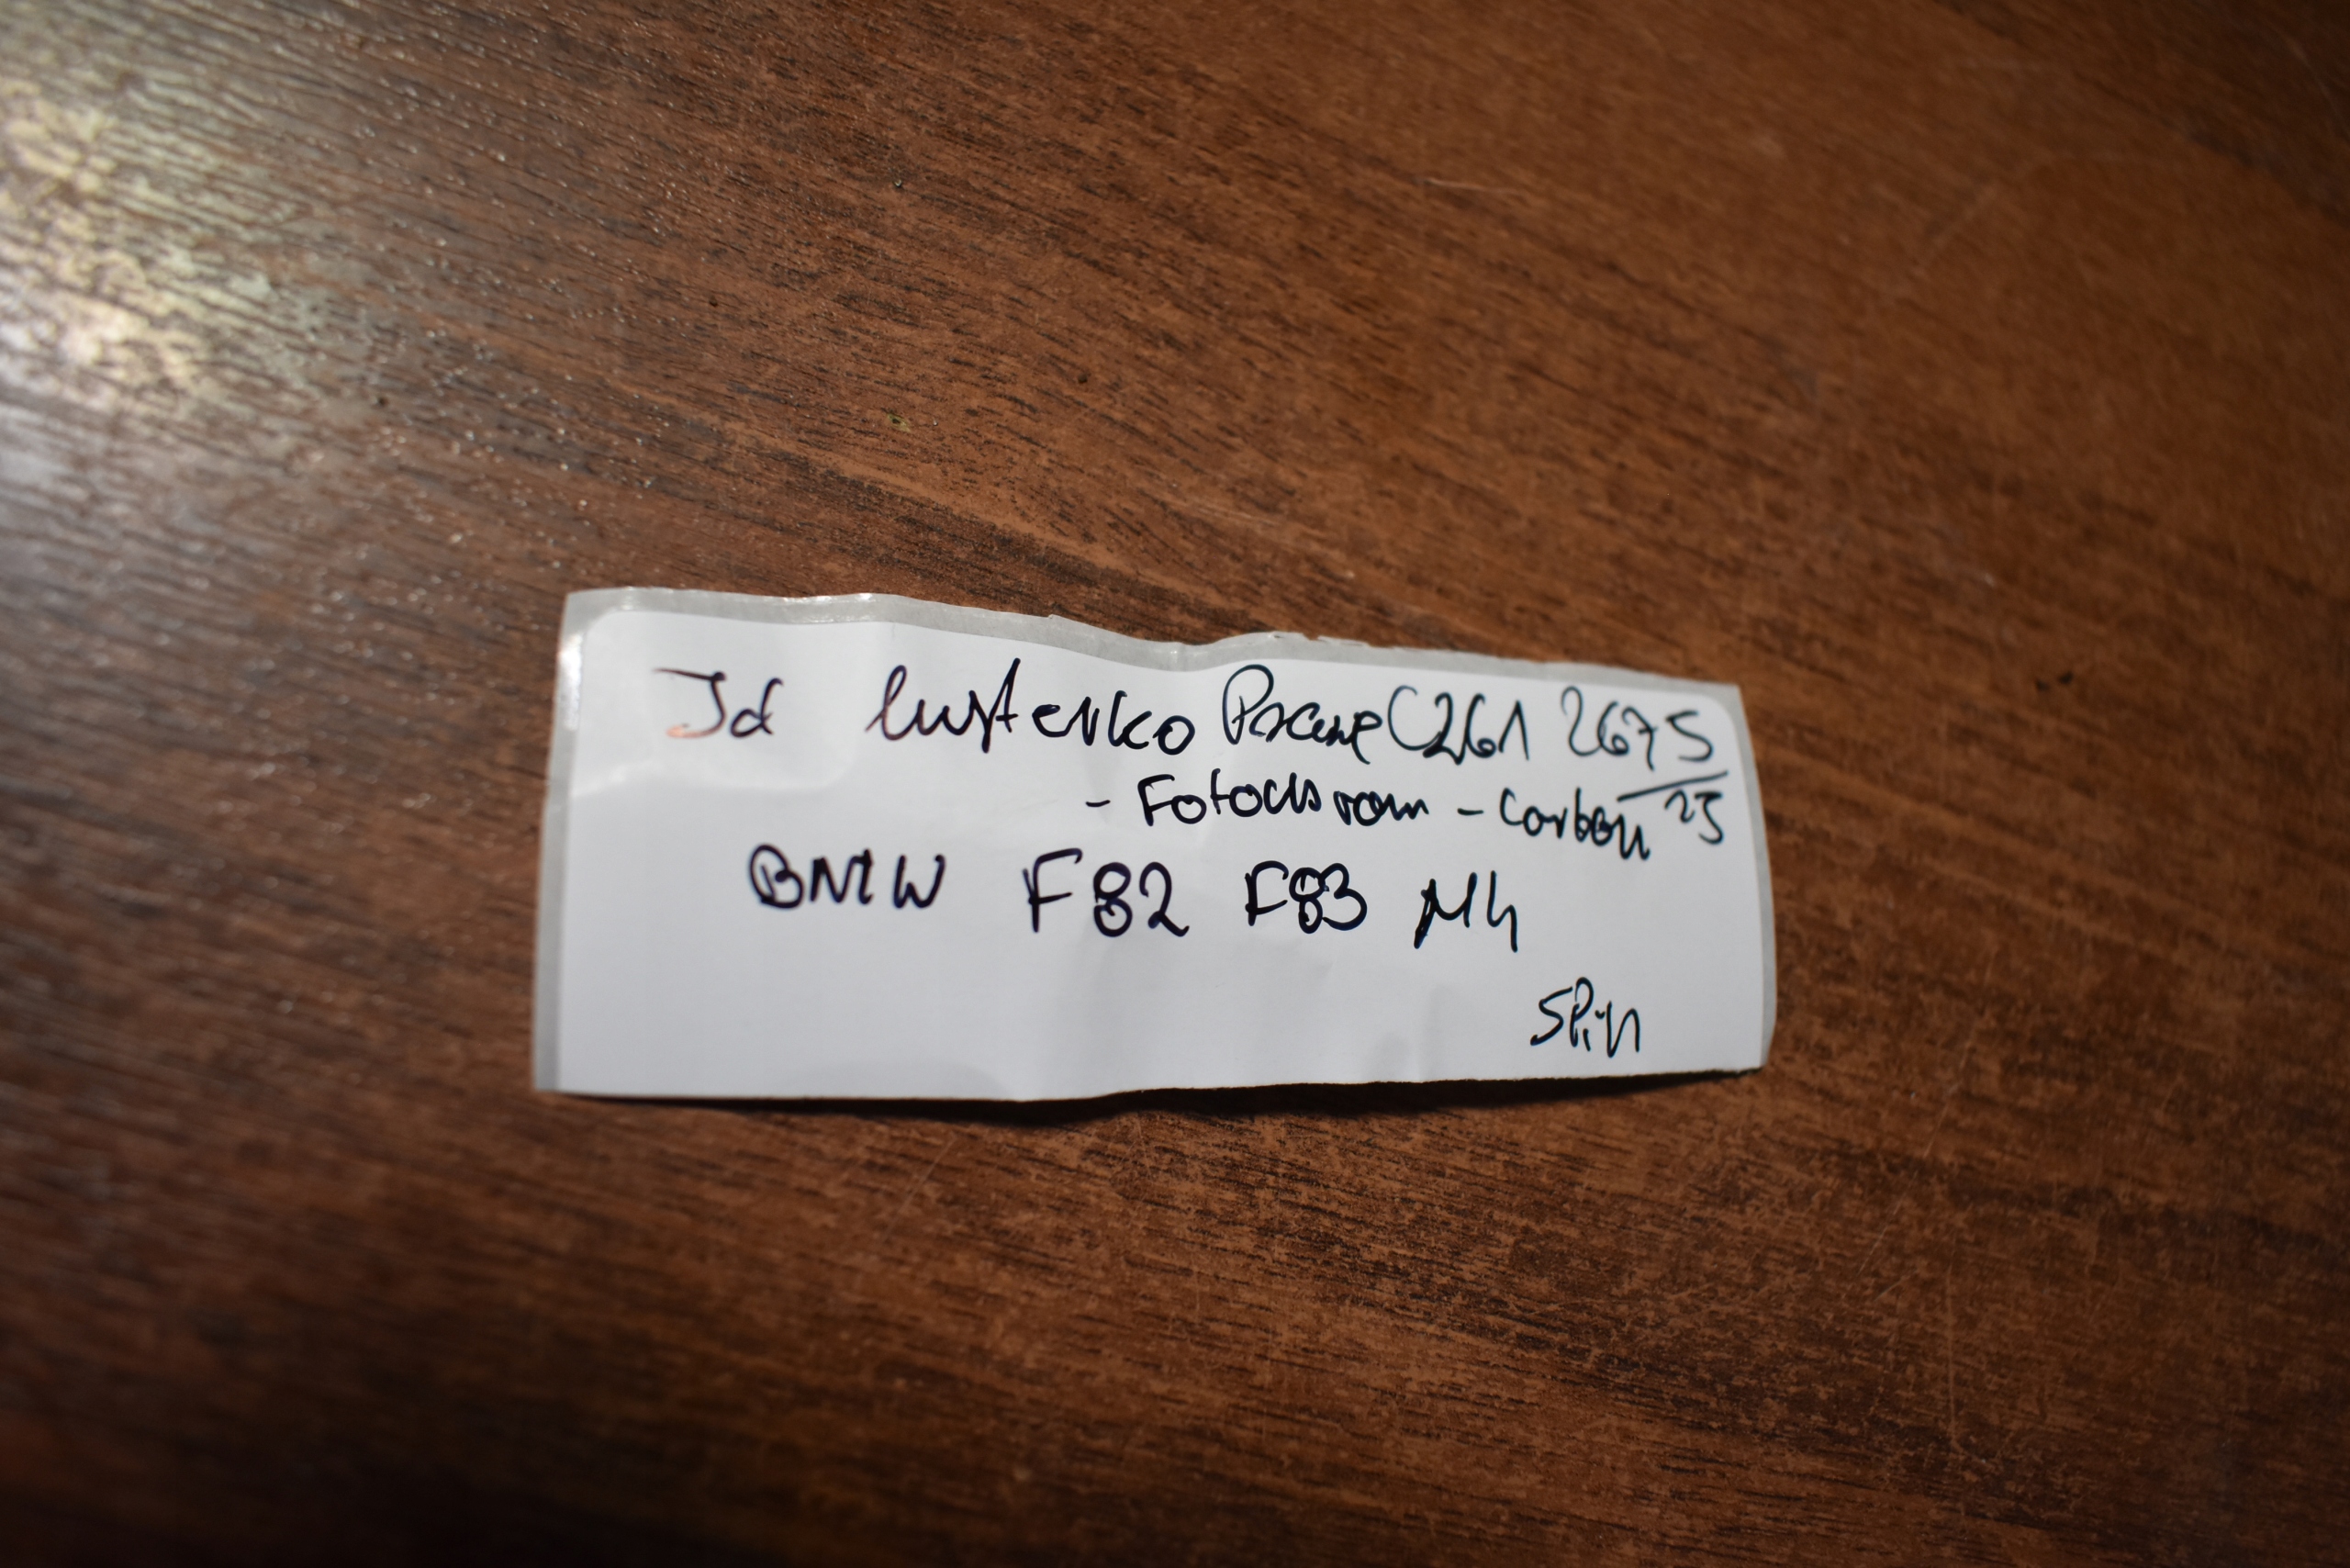 Id lusterko Prawe C261 2675/25
- Fotochrom - Carbon
BMW F82 F83 M4
5Pin